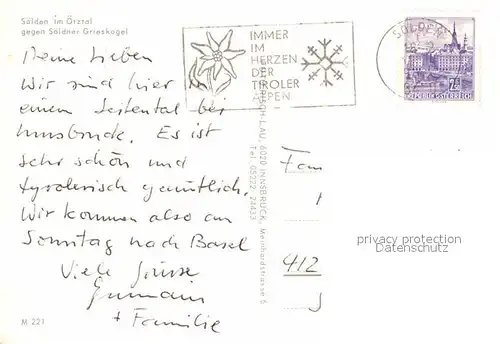 Sölden im Ötztal
gegen Söldner Grieskogel
IMMER
IM
HERZEN
DER
TIROLER
ALPEN
SÖLDEN
REPUBLIK ÖSTERREICH
Meine Lieben
Wir sind hier in
einem Seitental bei
Innsbruck. Es ist
sehr schön und
tyrolerisch gemütlich.
Wir kommen also am
Sonntag nach Basel
Viele Grüsse
Germain
+ Familie
M 221
CHIZZALI, 6020 INNSBRUCK, Meinhardstrasse 6
Tel. 05222-24433
Fam
412
privacy protection
Datenschutz